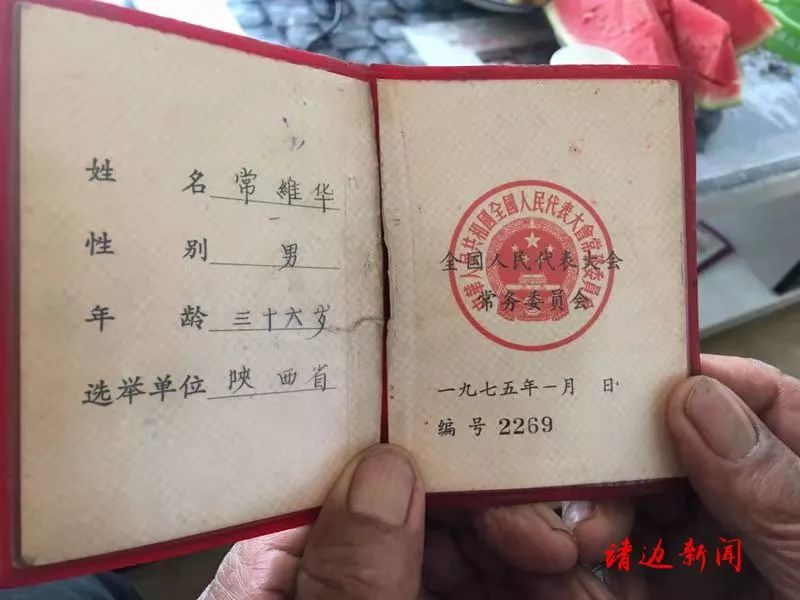 姓 名 常維华
性 别 男
年 龄 三十六岁
选举单位 陝西省
中華人民共和國全國人民代表大會常務委員會
全国人民代表大会
常务委员会
一九七五年一月 日
编号 2269
靖边新闻